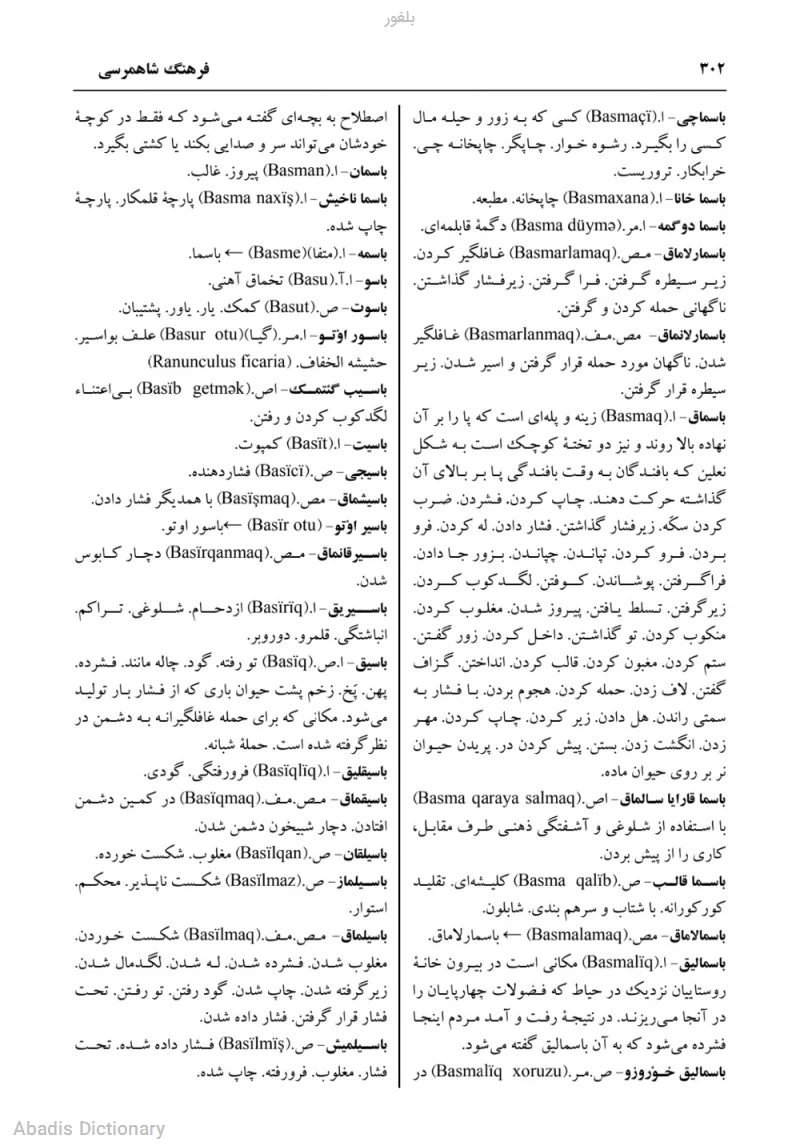 بلغور
۳۰۲
فرهنگ شاهمرسی
باسماچی- ا.(Basmaçï) کسی که به زور و حیله مال
کسی را بگیرد. رشوه خوار. چاپگر. چاپخانه چی.
خرابکار. تروریست.
باسما خانا- ا.(Basmaxana) چاپخانه. مطبعه.
باسما دوگمه- ا.مر.(Basma düymə) دگمۀ قابلمه‌ای.
باسمارلاماق- مص.(Basmarlamaq) غافلگیر کردن.
زیر سیطره گرفتن. فرا گرفتن. زیرفشار گذاشتن.
ناگهانی حمله کردن و گرفتن.
باسمارلانماق- مص.مف.(Basmarlanmaq) غافلگیر
شدن. ناگهان مورد حمله قرار گرفتن و اسیر شدن. زیر
سیطره قرار گرفتن.
باسماق- ا.(Basmaq) زینه و پله‌ای است که پا را بر آن
نهاده بالا روند و نیز دو تختۀ کوچک است به شکل
نعلین که بافندگان به وقت بافندگی پا بر بالای آن
گذاشته حرکت دهند. چاپ کردن. فشردن. ضرب
کردن سکّه. زیرفشار گذاشتن. فشار دادن. له کردن. فرو
بردن. فرو کردن. تپاندن. چپاندن. بزور جا دادن.
فراگرفتن. پوشاندن. کوفتن. لگدکوب کردن.
زیرگرفتن. تسلط یافتن. پیروز شدن. مغلوب کردن.
منکوب کردن. تو گذاشتن. داخل کردن. زور گفتن.
ستم کردن. مغبون کردن. قالب کردن. انداختن. گزاف
گفتن. لاف زدن. حمله کردن. هجوم بردن. با فشار به
سمتی راندن. هل دادن. زیر کردن. چاپ کردن. مهر
زدن. انگشت زدن. بستن. پیش کردن در. پریدن حیوان
نر بر روی حیوان ماده.
باسما قارایا سالماق- اص.(Basma qaraya salmaq)
با استفاده از شلوغی و آشفتگی ذهنی طرف مقابل،
کاری را از پیش بردن.
باسما قالب- ص.(Basma qalïb) کلیشه‌ای. تقلید
کورکورانه. با شتاب و سرهم بندی. شابلون.
باسمالاماق- مص.(Basmalamaq) ← باسمارلاماق.
باسمالیق- ا.(Basmalïq) مکانی است در بیرون خانۀ
روستاییان نزدیک در حیاط که فضولات چهارپایان را
در آنجا می‌ریزند. در نتیجۀ رفت و آمد مردم اینجا
فشرده می‌شود که به آن باسمالیق گفته می‌شود.
باسمالیق خوْروزو- ص.مر.(Basmalïq xoruzu) در
اصطلاح به بچه‌ای گفته می‌شود که فقط در کوچۀ
خودشان می‌تواند سر و صدایی بکند یا کشتی بگیرد.
باسمان- ا.(Basman) پیروز. غالب.
باسما ناخیش- ا.(Basma naxïş) پارچۀ قلمکار. پارچۀ
چاپ شده.
باسمه- ا.(متفا)(Basme) ← باسما.
باسو- ا.آ.(Basu) تخماق آهنی.
باسوت- ص.(Basut) کمک. یار. یاور. پشتیبان.
باسور اوْتو- ا.مر.(گیا)(Basur otu) علف بواسیر.
حشیشه الخفاف. (Ranunculus ficaria)
باسیب گئتمک- اص.(Basïb getmək) بی‌اعتناء
لگدکوب کردن و رفتن.
باسیت- ا.(Basït) کمپوت.
باسیجی- ص.(Basïcï) فشاردهنده.
باسیشماق- مص.(Basïşmaq) با همدیگر فشار دادن.
باسیر اوْتو- (Basïr otu) ←باسور اوتو.
باسیرقانماق- مص.(Basïrqanmaq) دچار کابوس
شدن.
باسیریق- ا.(Basïrïq) ازدحام. شلوغی. تراکم.
انباشتگی. قلمرو. دوروبر.
باسیق- ا.ص.(Basïq) تو رفته. گود. چاله مانند. فشرده.
پهن. پَخ. زخم پشت حیوان باری که از فشار بار تولید
می‌شود. مکانی که برای حمله غافلگیرانه به دشمن در
نظرگرفته شده است. حملۀ شبانه.
باسیقلیق- ا.(Basïqlïq) فرورفتگی. گودی.
باسیقماق- مص.مف.(Basïqmaq) در کمین دشمن
افتادن. دچار شبیخون دشمن شدن.
باسیلقان- ص.(Basïlqan) مغلوب. شکست خورده.
باسیلماز- ص.(Basïlmaz) شکست ناپذیر. محکم.
استوار.
باسیلماق- مص.مف.(Basïlmaq) شکست خوردن.
مغلوب شدن. فشرده شدن. له شدن. لگدمال شدن.
زیرگرفته شدن. چاپ شدن. گود رفتن. تو رفتن. تحت
فشار قرار گرفتن. فشار داده شدن.
باسیلمیش- ص.(Basïlmïş) فشار داده شده. تحت
فشار. مغلوب. فرورفته. چاپ شده.
Abadis Dictionary